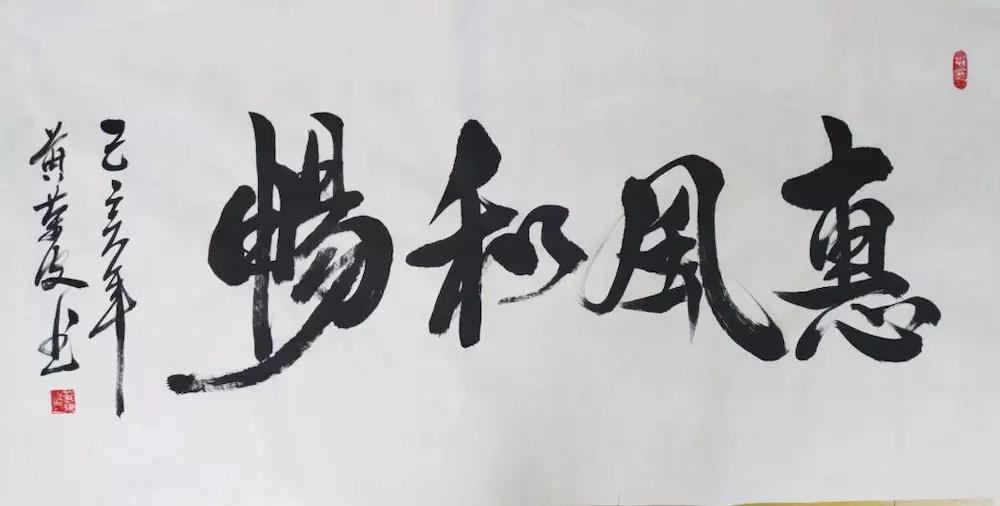 惠風和暢
己亥年
黄荣良书